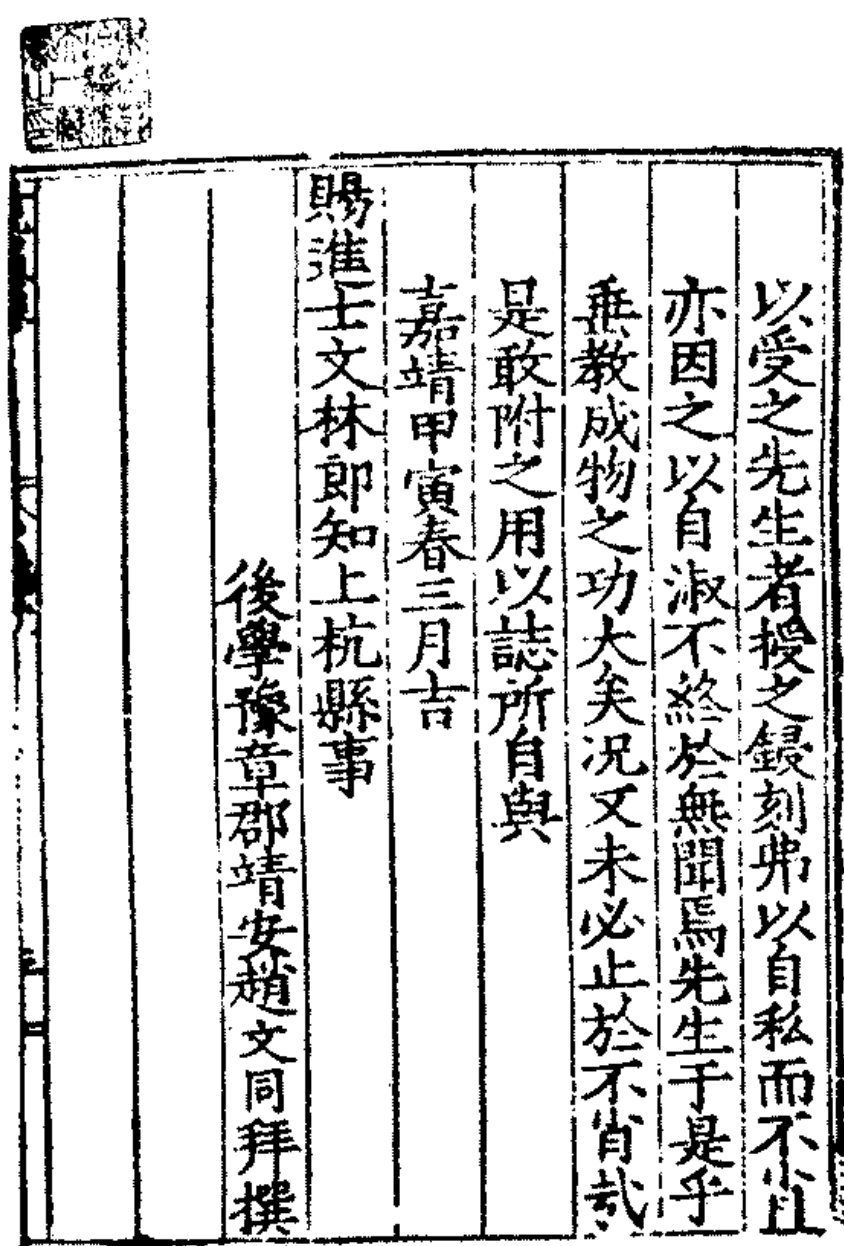 以受之先生者授之鋟刻弗以自私而不肖且
亦因之以自淑不終於無聞焉先生于是乎
垂教成物之功大矣况又未必止於不肖哉
是敢附之用以誌所自與
嘉靖甲寅春三月吉
賜進士文林郎知上杭縣事
後學豫章郡靖安趙文同拜撰